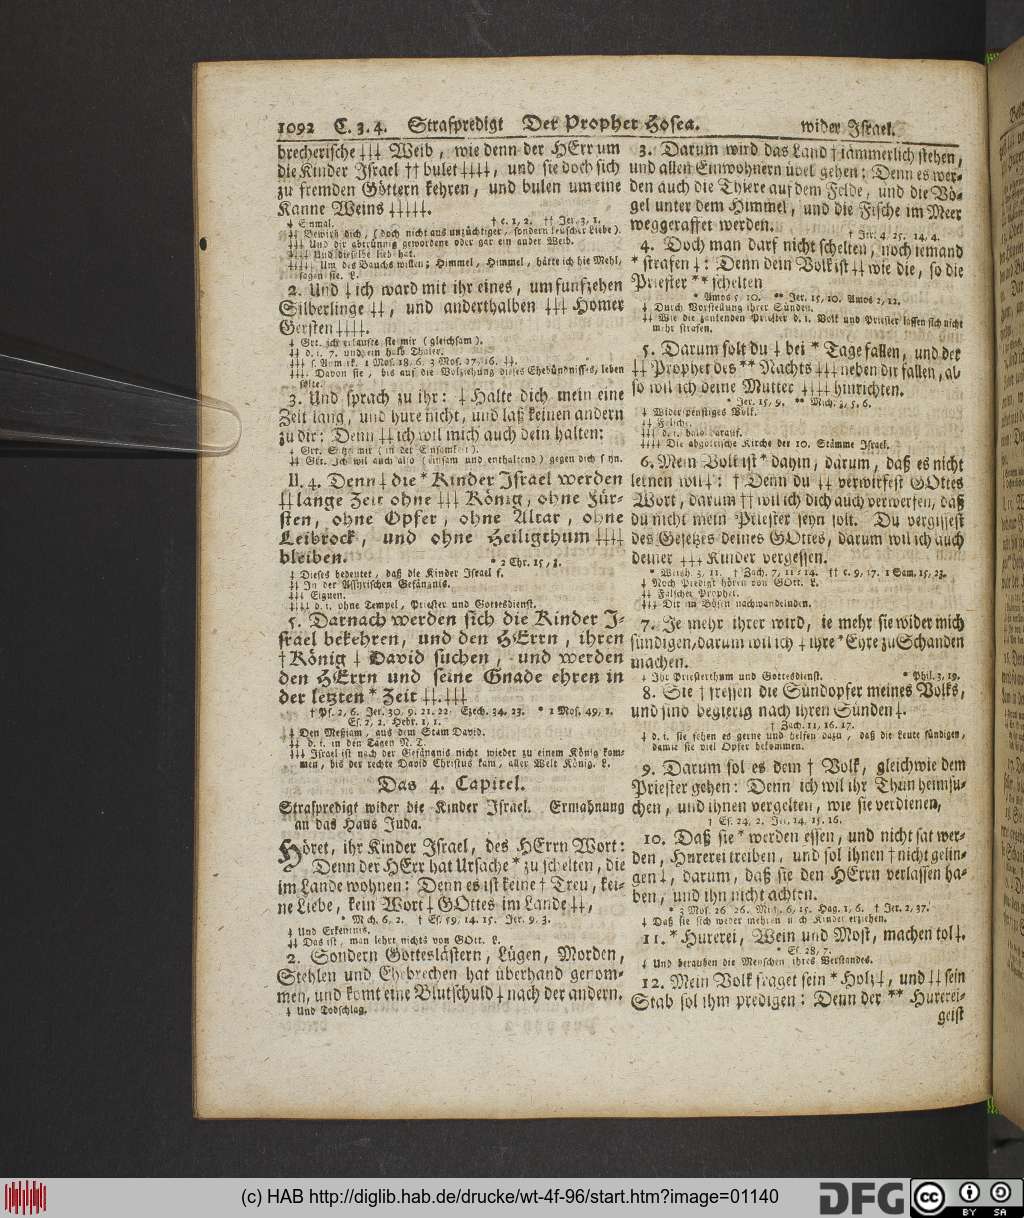 1092 C. 3. 4. Strafpredigt Der Prophet Hosea. wider Israel.
brecherische ‡‡‡ Weib, wie denn der HErr um
die Kinder Israel †† bulet ‡‡‡‡, und sie doch sich
zu fremden Göttern kehren, und bulen um eine
Kanne Weins ‡‡‡‡‡.
‡ Einmal. † c. 1, 2. †† Jer. 3, 1.
‡‡ Beweiß dich, (doch nicht aus unzüchtiger, sondern keuscher Liebe).
‡‡‡ Und dir abtrünnig gewordene oder gar ein ander Weib.
‡‡‡‡ Und dieselbe lieb hat.
‡‡‡‡‡ Um des Bauchs willen; Himmel, Himmel, hätte ich hie Mehl,
sagen sie. L.
2. Und ‡ ich ward mit ihr eines, um funfzehen
Silberlinge ‡‡, und anderthalben ‡‡‡ Homer
Gersten ‡‡‡‡.
‡ Grt. Ich erkaufte sie mir (gleichsam).
‡‡ d. i. 7. und ein halb Thaler.
‡‡‡ s. Anmerk. 1 Mos. 18, 6. 3 Mos. 27, 16. ‡‡.
‡‡‡‡ Davon sie, bis auf die Volziehung dieses Ehebündnisses, leben
solte.
3. Und sprach zu ihr: ‡ Halte dich mein eine
Zeit lang, und hure nicht, und laß keinen andern
zu dir: Denn ‡‡ ich wil mich auch dein halten:
‡ Grt. Sitze mir (in der Einsamkeit).
‡‡ Grt. Ich wil auch also (einsam und enthaltend) gegen dich seyn.
II. 4. Denn ‡ die * Kinder Israel werden
‡‡ lange Zeit ohne ‡‡‡ König, ohne Für-
sten, ohne Opfer, ohne Altar, ohne
Leibrock, und ohne Heiligthum ‡‡‡‡
bleiben. * 2 Chr. 15, 3.
‡ Dieses bedeutet, daß die Kinder Israel s.
‡‡ In der Assyrischen Gefängnis.
‡‡‡ Eignen.
‡‡‡‡ d. i. ohne Tempel, Priester und Gottesdienst.
5. Darnach werden sich die Kinder I-
srael bekehren, und den HErrn, ihren
† König ‡ David suchen, und werden
den HErrn und seine Gnade ehren in
der letzten * Zeit ‡‡. ‡‡‡
† Ps. 2, 6. Jer. 30, 9. 21. 22. Ezech. 34, 23. * 1 Mos. 49, 1.
Es. 2, 2. Hebr. 1, 1.
‡ Den Meßiam, aus dem Stam David.
‡‡ d. i. in den Tagen N. T.
‡‡‡ Israel ist nach der Gefängnis nicht wieder zu einem König kom-
men, bis der rechte David Christus kam, aller Welt König. L.
Das 4. Capitel.
Strafpredigt wider die Kinder Israel. Ermahnung
an das Haus Juda.
Höret, ihr Kinder Israel, des HErrn Wort:
Denn der HErr hat Ursache * zu schelten, die
im Lande wohnen: Denn es ist keine † Treu, kei-
ne Liebe, kein Wort ‡ GOttes im Lande ‡‡,
* Mich. 6, 2. † Es. 59, 14. 15. Jer. 9, 3.
‡ Und Erkentnis.
‡‡ Das ist, man lehrt nichts von GOtt. L.
2. Sondern Gotteslästern, Lügen, Morden,
Stehlen und Ehebrechen hat überhand genom-
men, und komt eine Blutschuld ‡ nach der andern.
‡ Und Todschlag.
3. Darum wird das Land † iämmerlich stehen,
und allen Einwohnern übel gehen: Denn es wer-
den auch die Thiere auf dem Felde, und die Vö-
gel unter dem Himmel, und die Fische im Meer
weggeraffet werden. † Jer. 4, 25. 14, 4.
4. Doch man darf nicht schelten, noch iemand
* strafen ‡: Denn dein Volk ist ‡‡ wie die, so die
Priester ** schelten
* Amos 5, 10. ** Jer. 15, 10. Amos 2, 12.
‡ Durch Vorstellung ihrer Sünden.
‡‡ Wie die zankenden Priester d. i. Volk und Priester lassen sich nicht
mehr strafen.
5. Darum solt du ‡ bei * Tage fallen, und der
‡‡ Prophet des ** Nachts ‡‡‡ neben dir fallen, al-
so wil ich deine Mutter ‡‡‡‡ hinrichten.
* Jer. 15, 9. ** Mich. 3, 5. 6.
‡ Widerspenstiges Volk.
‡‡ Falsche.
‡‡‡ d. i. bald darauf.
‡‡‡‡ Die abgötische Kirche der 10. Stämme Israel.
6. Mein Volk ist * dahin, darum, daß es nicht
lernen wil ‡: † Denn du ‡‡ verwirfest GOttes
Wort, darum †† wil ich dich auch verwerfen, daß
du nicht mein Priester seyn solt. Du vergissest
des Gesetzes deines GOttes, darum wil ich auch
deiner ‡‡‡ Kinder vergessen.
* Weish. 3, 11. † Zach. 7, 11-14. †† c. 9, 17. 1 Sam. 15, 23.
‡ Noch Predigt hören von GOtt. L.
‡‡ Falscher Prophet.
‡‡‡ Dir im Bösen nachwandelnden.
7. Je mehr ihrer wird, ie mehr sie wider mich
sündigen, darum wil ich ‡ ihre * Ehre zu Schanden
machen. 
‡ Ihr Priesterthum und Gottesdienst. * Phil. 3, 19.
8. Sie † fressen die Sündopfer meines Volks,
und sind begierig nach ihren Sünden ‡.
† Zach. 11, 16. 17.
‡ d. i. sie sehen es gerne und helfen dazu, daß die Leute sündigen,
damit sie viel Opfer bekommen.
9. Darum sol es dem † Volk, gleichwie dem
Priester gehen: Denn ich wil ihr Thun heimsu-
chen, und ihnen vergelten, wie sie verdienen,
† Es. 24, 2. Jer. 14, 15. 16.
10. Daß sie * werden essen, und nicht sat wer-
den, Hurerei treiben, und sol ihnen † nicht gelin-
gen ‡, darum, daß sie den HErrn verlassen ha-
ben, und ihn nicht achten.
* 3 Mos. 26, 26. Mich. 6, 15. Hag. 1, 6. † Jer. 2, 37.
‡ Daß sie sich weder mehren noch Kinder erziehen.
11. * Hurerei, Wein und Most, machen tol ‡.
* Es. 28, 7.
‡ Und berauben die Menschen ihres Verstandes.
12. Mein Volk fraget sein * Holz ‡, und ‡‡ sein
Stab sol ihm predigen: Denn der ** Hurerei-
geist
(c) HAB http://diglib.hab.de/drucke/wt-4f-96/start.htm?image=01140
DFG
cc BY SA